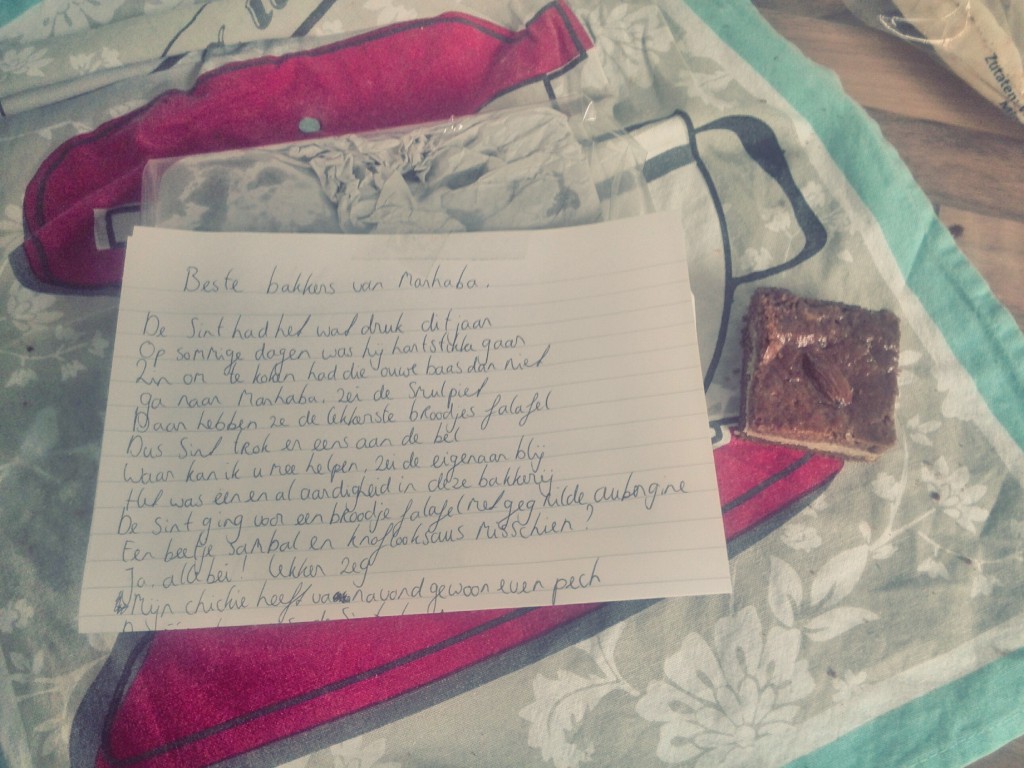 Beste bakkers van Marhaba.
De Sint had het wat druk dit jaar
Op sommige dagen was hij hartstikke gaar
Zin om te koken had die ouwe baas dan niet
ga naar Marhaba, zei de Smulpiet
Daar hebben ze de lekkerste broodjes falafel
Dus Sint trok er eens aan de bel
Waar kan ik u mee helpen, zei de eigenaar blij
Het was een en al aardigheid in deze bakkerij
De Sint ging voor een broodje falafel met gegrilde aubergine
Een beetje sambal en knoflooksaus misschien?
Ja, allebei! Lekker zeg
Mijn chickie heeft vanavond gewoon even pech
Zutaten